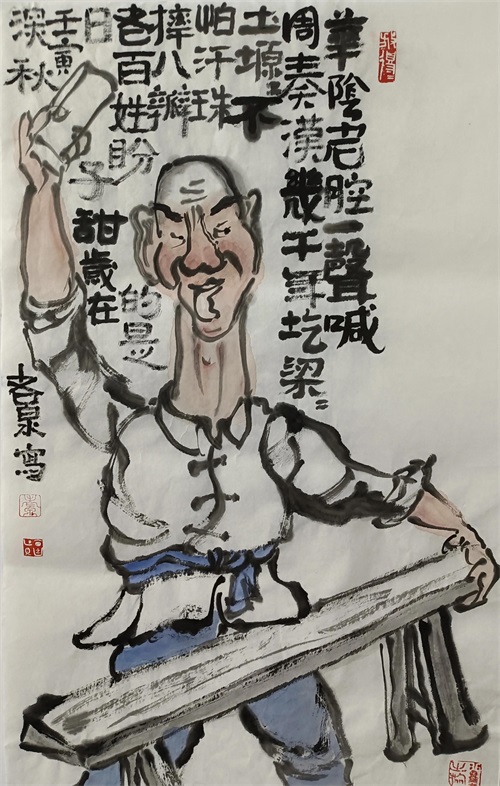 華陰老腔一聲喊
周秦漢幾千年圪梁〻
土塬〻不
怕汗珠
摔八瓣
老百姓盼的是
日子甜歲在
壬寅
深秋
泉寫